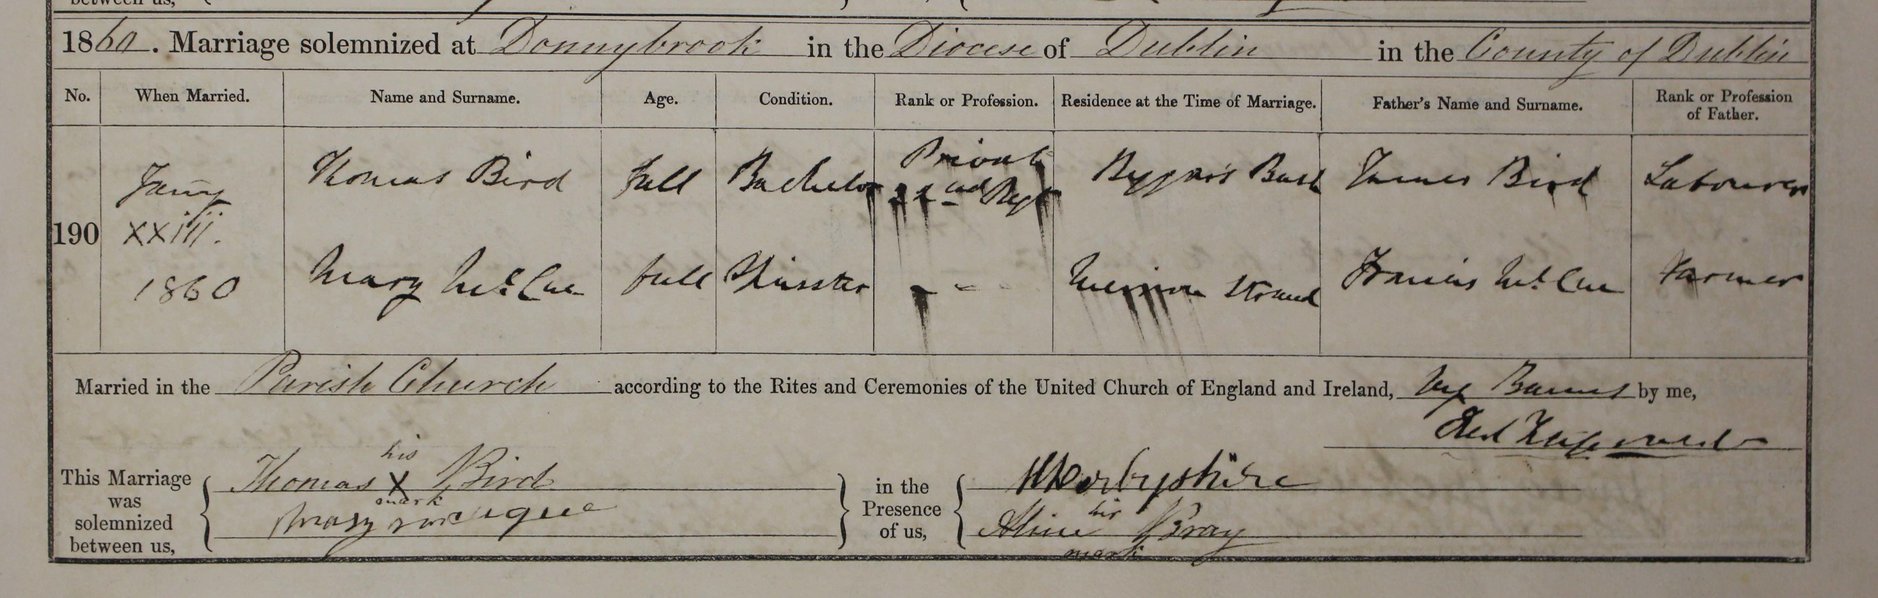 between us,
1860. Marriage solemnized at Donnybrook in the Diocese of Dublin in the County of Dublin
No. When Married. Name and Surname. Age. Condition. Rank or Profession. Residence at the Time of Marriage. Father's Name and Surname. Rank or Profession of Father.
190
Jany
XXiii.
1860
Thomas Bird full Bachelor Private 22nd Regt Beggar's Bush James Bird Labourer
Mary McCue full Spinster - - - Merrion Strand Francis McCue Farmer
Married in the Parish Church according to the Rites and Ceremonies of the United Church of England and Ireland, by Banns by me,
Fred Fitzgerald
This Marriage was solemnized between us,
Thomas his X mark Bird
Mary
in the Presence of us,
Derbyshire
his Bray
mark